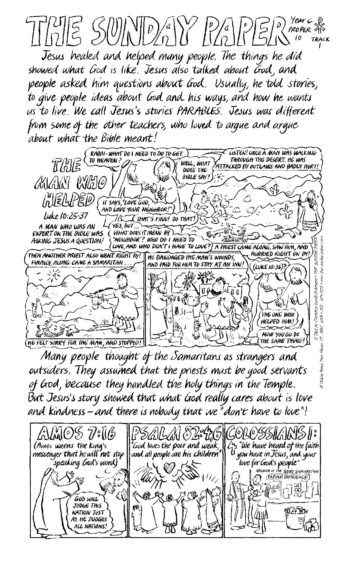 THE SUNDAY PAPER
YEAR C
PROPER
10 TRACK
1
Jesus healed and helped many people. The things he did
showed what God is like. Jesus also talked about God, and
people asked him questions about God. Usually, he told stories,
to give people ideas about God and his ways, and how he wants
us to live. We call Jesus's stories PARABLES. Jesus was different
from some of the other teachers, who loved to argue and argue
about what the Bible meant!
THE
MAN WHO
HELPED
Luke 10:25-37
A MAN WHO WAS AN
EXPERT IN THE BIBLE WAS
ASKING JESUS A QUESTION!
RABBI-WHAT DO I NEED TO DO TO GET
TO HEAVEN?
WELL, WHAT
DOES THE
BIBLE SAY?
IT SAYS, "LOVE GOD,
AND LOVE YOUR NEIGHBOR!"
THAT'S FINE! DO THAT!
YES, BUT...
WHAT DOES IT MEAN BY
"NEIGHBOR"? WHO DO I NEED TO
LOVE, AND WHO DON'T I HAVE TO LOVE?
LISTEN! ONCE A MAN WAS WALKING
THROUGH THE DESERT. HE WAS
ATTACKED BY OUTLAWS AND BADLY HURT!
A PRIEST CAME ALONG, SAW HIM, AND
HURRIED RIGHT ON BY!
THEN ANOTHER PRIEST ALSO WENT RIGHT BY!
FINALLY, ALONG CAME A SAMARITAN...
HE FELT SORRY FOR THE MAN, AND STOPPED!
HE BANDAGED THE MAN'S WOUNDS,
AND PAID FOR HIM TO STAY AT AN INN!
(LUKE 10:36)
THE ONE WHO
HELPED HIM!
NOW YOU GO DO
THE SAME THING!
Many people thought of the Samaritans as strangers and
outsiders. They assumed that the priests must be good servants
of God, because they handled the holy things in the Temple.
But Jesus's story showed that what God really cares about is love
and kindness – and there is nobody that we "don't have to love"!
AMOS 7:16
(Amos warns the king's
messenger that he will not stop
speaking God's word)
GOD WILL
JUDGE THIS
NATION JUST
AS HE JUDGES
ALL NATIONS!
PSALM 82:4,6
"God loves the poor and weak,
and all people are his children"
COLOSSIANS 1:
"We have heard of the faith
you have in Jesus, and your
love for God's people"